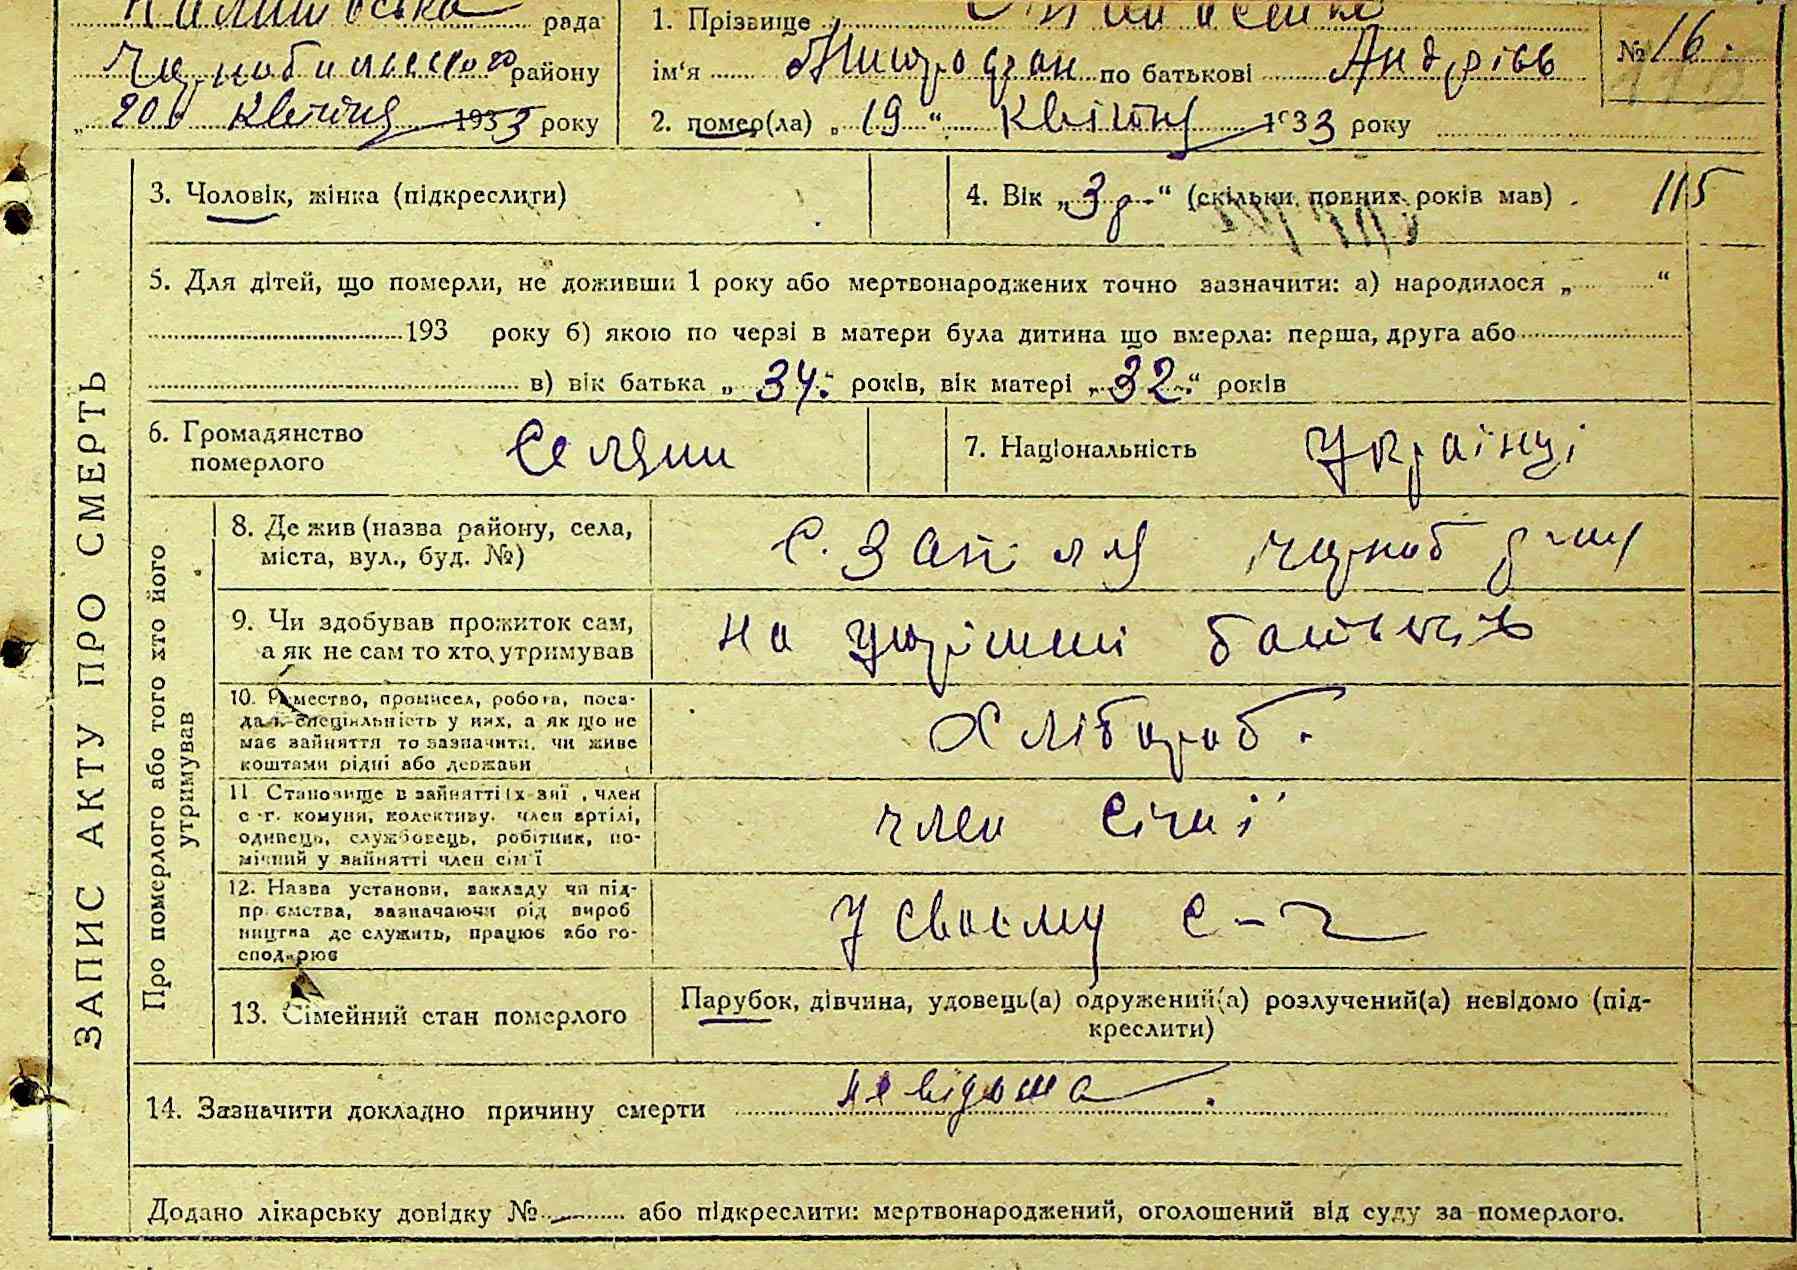 рада
Чорнобильського району
„ 20 " квітня 1933 року
1. Прізвище
ім'я Митрофан по батькові Андрієв
2. помер(ла) „ 19 “ квітня 1933 року
№ 16.
3. Чоловік, жінка (підкреслити)
4. Вік „ 3 р. “ (скільки повних років мав) .
115
5. Для дітей, що померли, не доживши 1 року або мертвонароджених точно зазначити: а) народилося „ “
193 року б) якою по черзі в матери була дитина що вмерла: перша, друга або
в) вік батька „ 34. “ років, вік матері „ 32. “ років
6. Громадянство
померлого
Селяни
7. Національність
Українці
ЗАПИС АКТУ ПРО СМЕРТЬ
Про померлого або того хто його
утримував
8. Де жив (назва району, села,
міста, вул., буд. №)
с. Запілля чорноб р-ну
9. Чи здобував прожиток сам,
а як не сам то хто утримував
на утрімані батьків
10. Ремество, промисел, робота, поса-
да й спеціяльність у них, а як що не
має зайняття то зазначити, чи живе
коштами рідні або держави
Хлібороб.
11. Становище в зайнятті , член
с.-г. комуни, колективу, член артілі,
одинець, службовець, робітник, по-
мічний у зайнятті член сім'ї
член сім'ї
12. Назва установи, закладу чи під-
приємства, зазначаючи рід вироб
ництва де служить, працює або го-
сподарює
У своєму с-г
13. Сімейний стан померлого
Парубок, дівчина, удовець(а) одружений(а) розлучений(а) невідомо (під-
креслити)
14. Зазначити докладно причину смерти невідома.
Додано лікарську довідку № — або підкреслити: мертвонароджений, оголошений від суду за померлого.